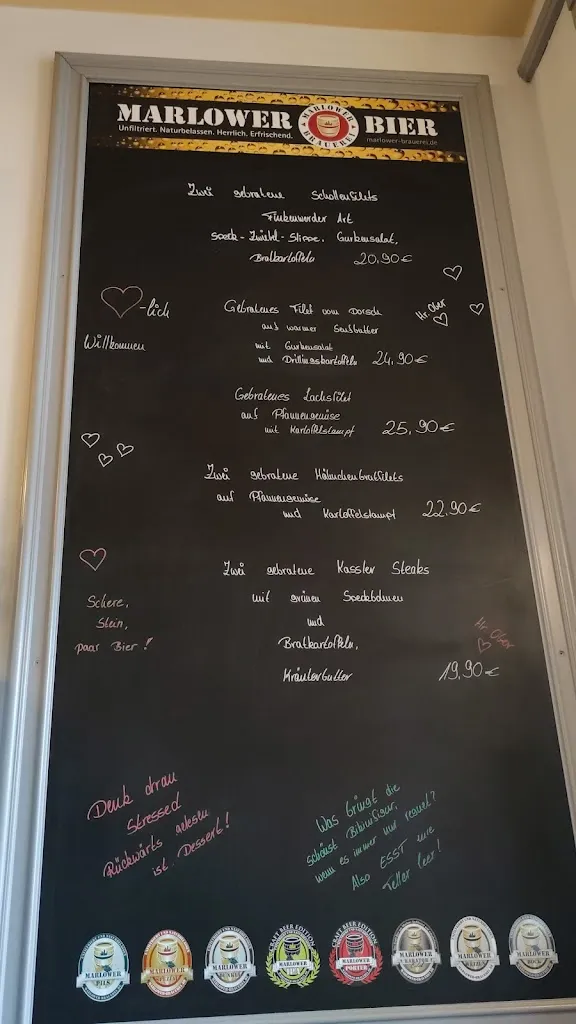 MARLOWER BIER
Unfiltriert. Naturbelassen. Herrlich. Erfrischend.
marlower-brauerei.de
MARLOWER
BRAUEREI
Zwei gebratene Schollenfilets
Finkenwerder Art
Speck-Zwiebel-Stippe, Gurkensalat,
Bratkartoffeln 20,90€
-lich
Willkommen
Gebratenes Filet vom Dorsch
auf warmer Senfbutter
mit Gurkensalat
und Drillingskartoffeln 24,90€
Hr. Ober
Gebratenes Lachsfilet
auf Pfannengemüse
mit Kartoffelstampf 25,90€
Zwei gebratene Hähnchenbrustfilets
auf Pfannengemüse
und Kartoffelstampf 22,90€
Zwei gebratene Kassler Steaks
mit grünen Speckbohnen
und
Bratkartoffeln,
Kräuterbutter 19,90€
Schere,
Stein,
paar Bier!
Hr. Ober
Denk dran
Stressed
Rückwärts gelesen
ist Dessert!
Was bringt die
schönst Bikinifigur,
wenn es immer nur regnet?
Also ESST eure
Teller leer!
MARLOWER
PILS
MARLOWER
MARLOWER
CRAFT BEER EDITION
MARLOWER
CRAFT BEER EDITION
MARLOWER
PORTER
MARLOWER
MARLOWER
MARLOWER
BOCK